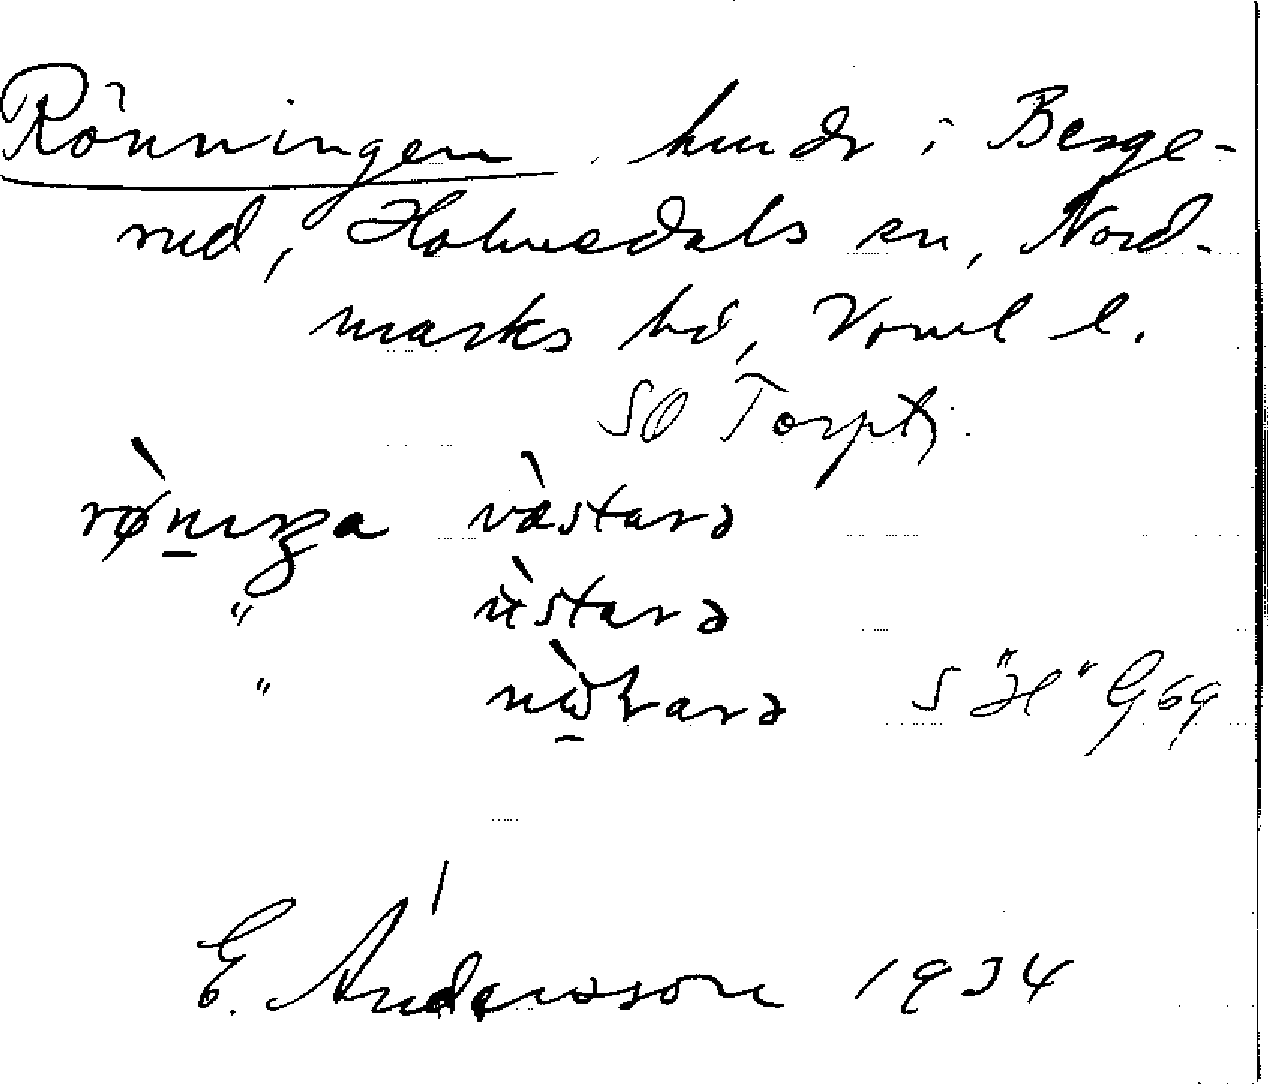 Rönningen, hmdr i Berge-
rud, Holmedals sn, Nord-
marks hd, Vrml l.
SO Torptj.
rø̀nıŋa vàstarə
" ùstarə
" nòꝛarə S "H" G69
E. Andersson 1934